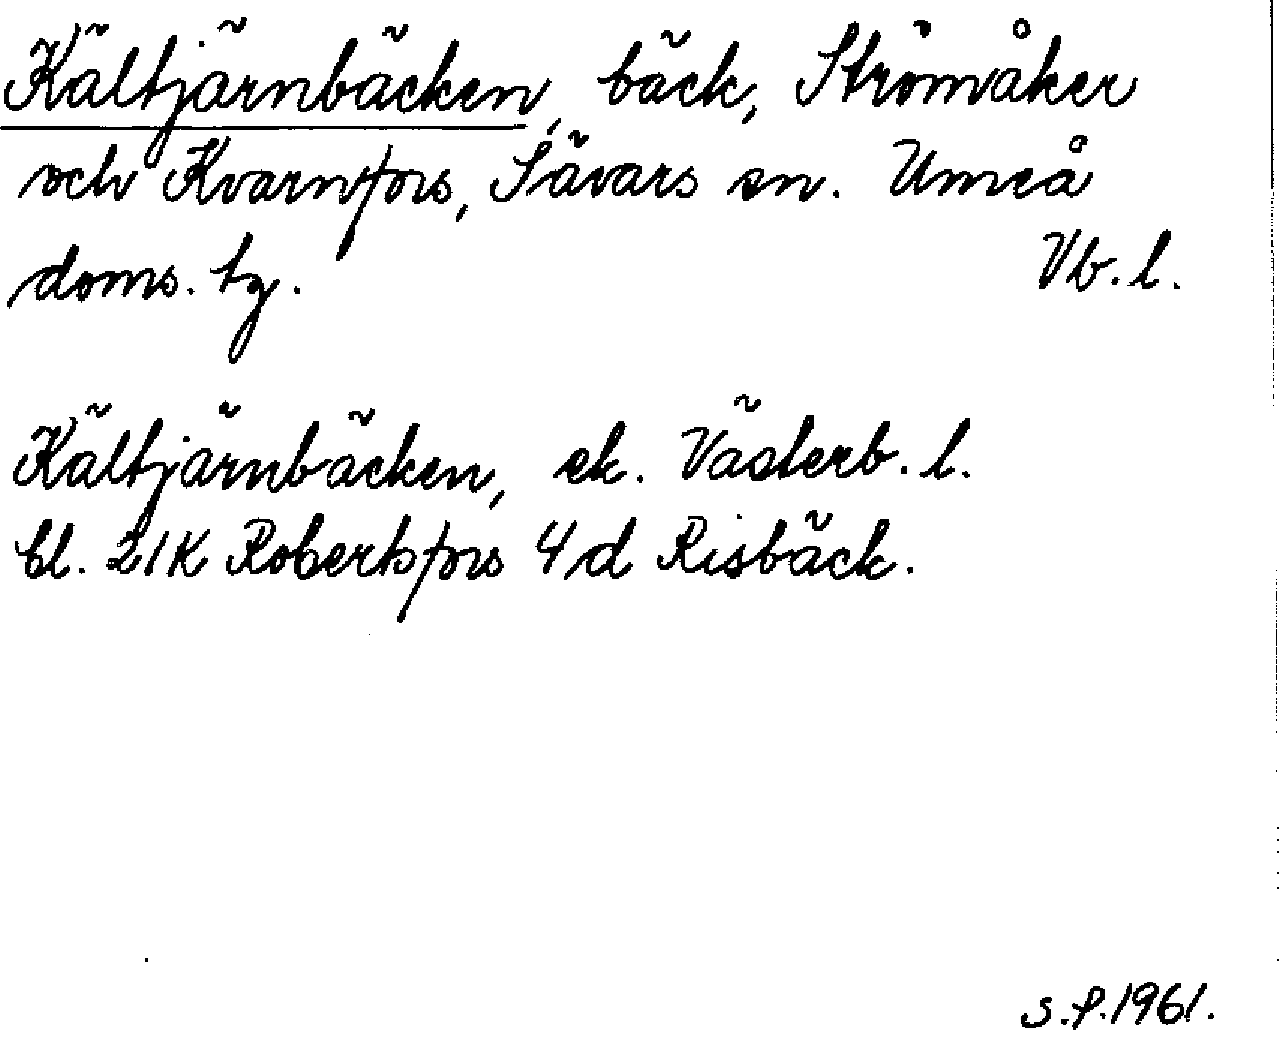 Kältjärnbäcken, bäck, Strömåker
och Kvarnfors, Sävars sn. Umeå
doms. tg. Vb. l.
Kältjärnbäcken, ek. Västerb. l.
bl. 21K Robertsfors 4d Risbäck.
S.P.1961.